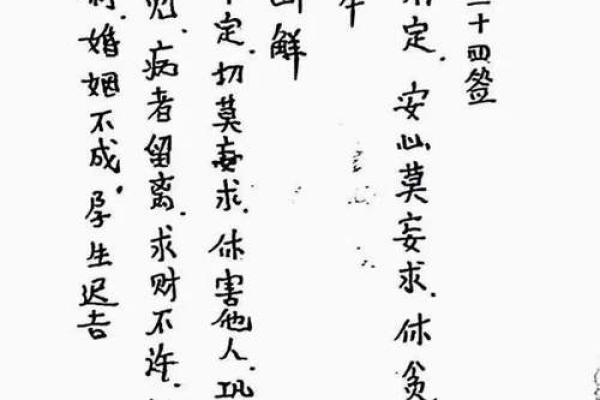 十四签
定.安心莫妄求.休贪
解
定.切莫妄求.休害他人.巩
病者留离.求财不许.
婚姻不成.孕生迟吉